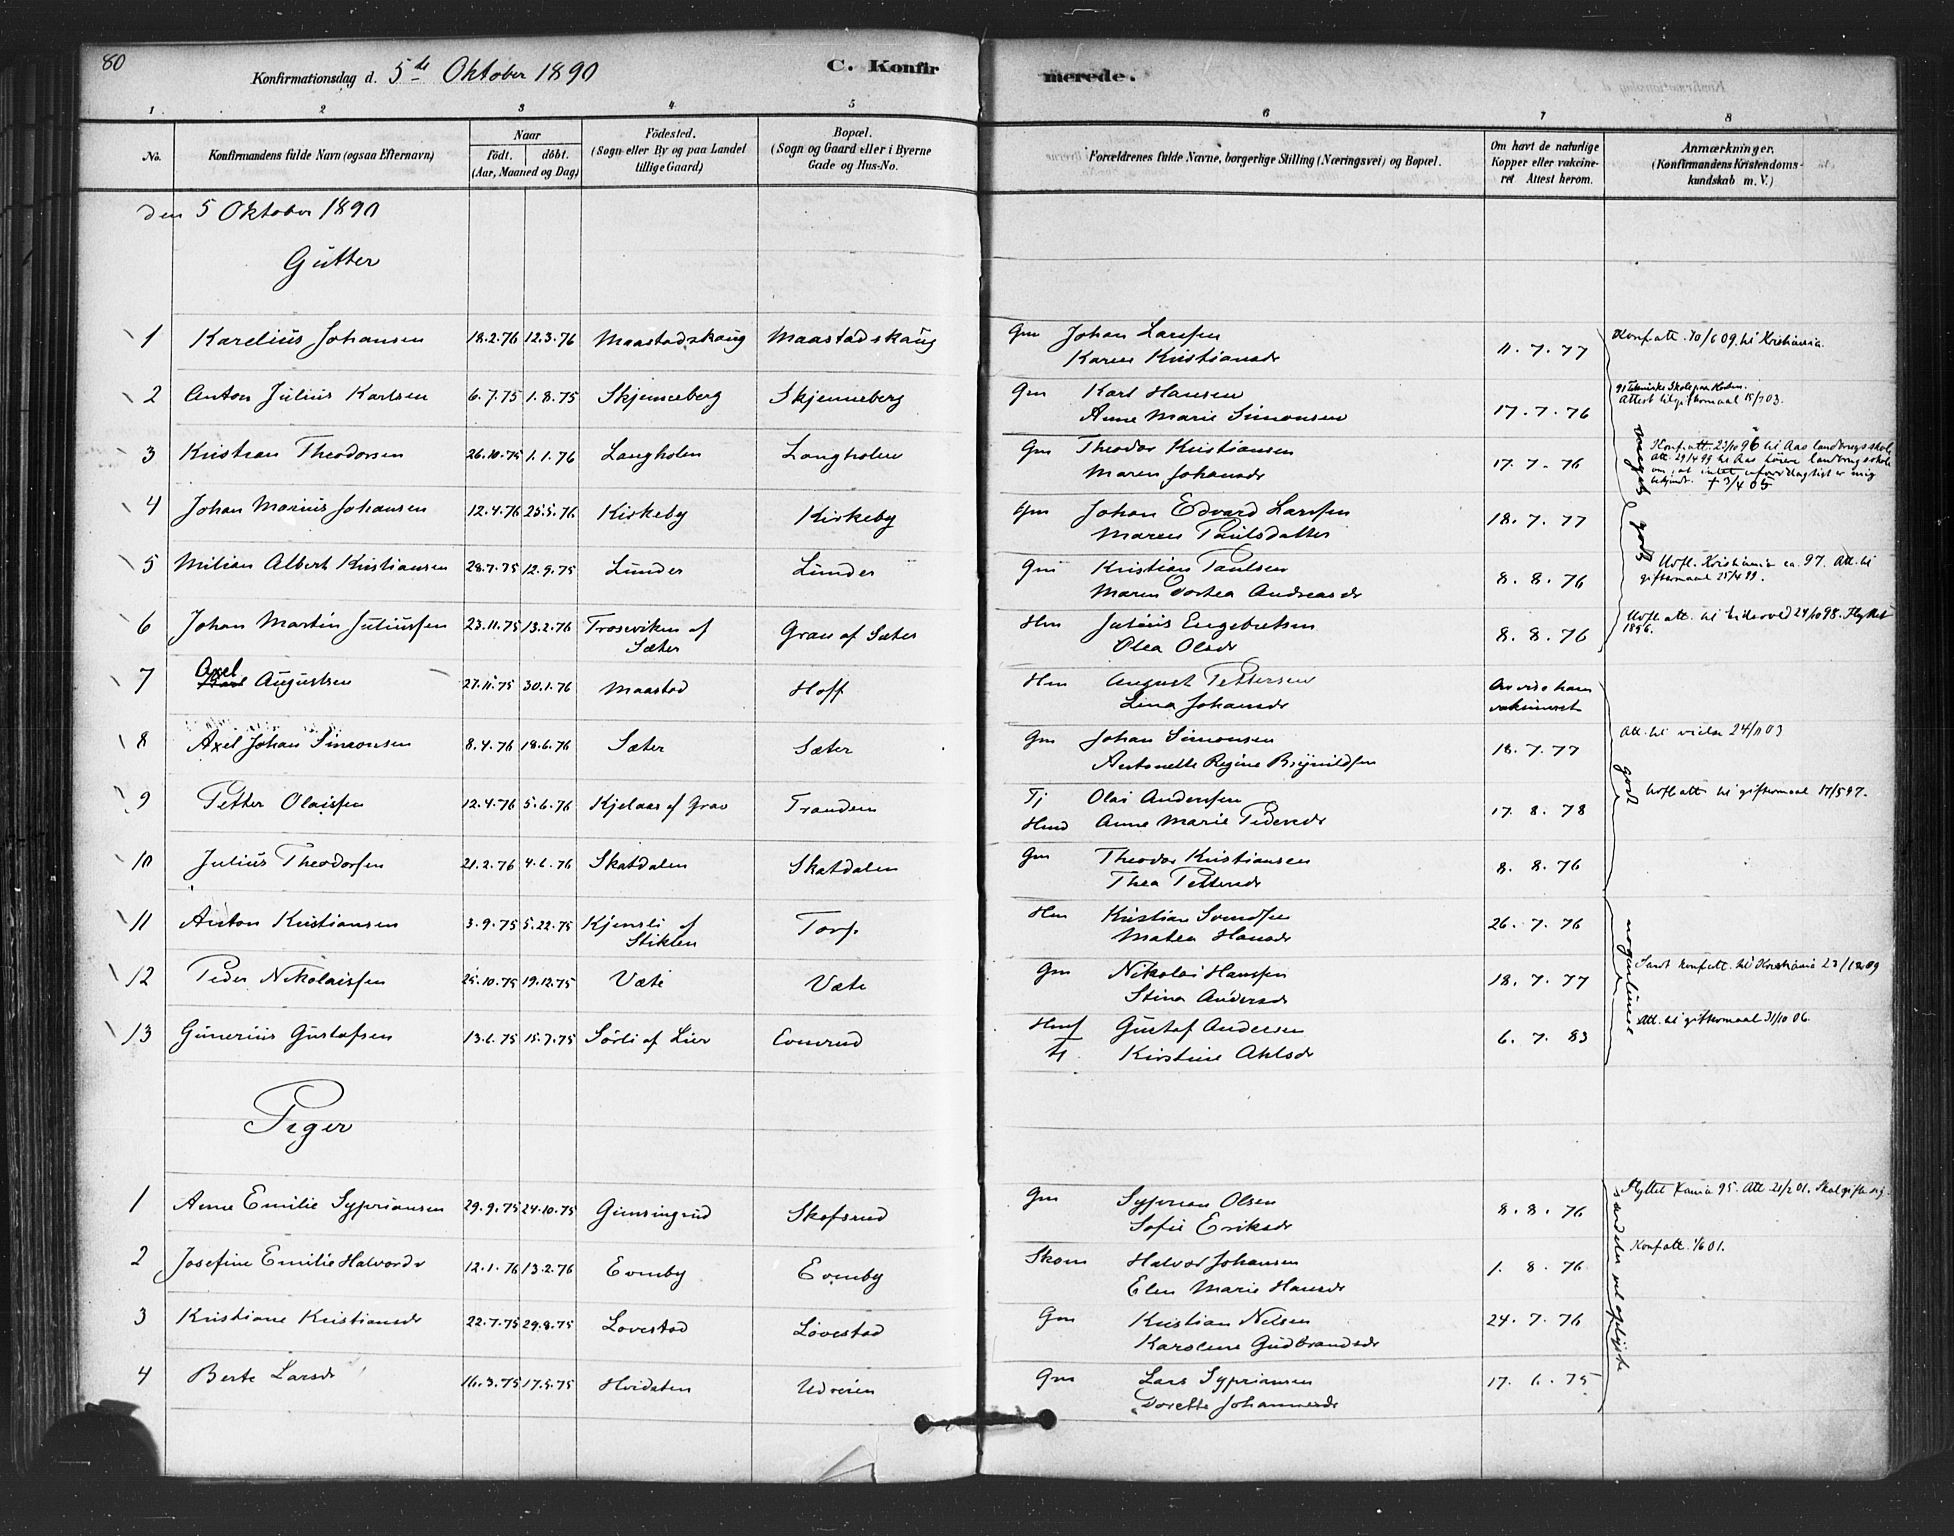 80
Konfirmationsdag d. 5te Oktober 1890
C. Konfirmerede.
1 2 3 4 5 6 7 8
No.
Konfirmandens fulde Navn (ogsaa Efternavn)
Naar
födt. döbt.
(Aar, Maaned og Dag)
Födested.
(Sogn eller By og paa Landet
tillige Gaard)
Bopæl.
(Sogn og Gaard eller i Byerne
Gade og Hus-No.
Forældrenes fulde Navne, borgerlige Stilling (Næringsvei) og Bopæl.
Om havt de naturlige
Kopper eller vakcine-
ret Attest herom.
Anmærkninger,
(Konfirmandens Kristendoms-
kundskab m. V.)
den 5 Oktober 1890
Gutter
1 Karelius Johansen 18.2.76 12.3.76 Maastadskaug Maastadskaug Gm Johan Larssen
Karen Kristiansdr 11.7.77 Konf.att. 10/6 09. til Kristiania
2 Anton Julius Karlsen 6.7.75 1.8.75 Skjenneberg Skjenneberg Gm Karl Hansen
Anne Marie Simonsen 17.7.76 91 Tekniske Skole paa Horten.
Attest til giftermaal 15/7 03.
3 Kristian Theodorsen 26.10.75 1.1.76 Langholen Langholen Gm Theodor Kristiansen
Maren Johansdr 17.7.76 Konf.att. 23/10 96 til Aas landbrugsskole
Att. 29/4 99 til Aas höiere landbrugsskole
om, at intet ufordelagtigt er mig
bekjendt. † 3/4 05
4 Johan Marius Johansen 12.4.76 25.5.76 Kirkeby Kirkeby Gm Johan Edvard Larssen
Maren Paulsdatter 18.7.77
meget godt
5 Milian Albert Kristiansen 28.7.75 12.9.75 Lunder Lunder Gm Kristian Paulsen
Maren Dortea Andreasdr 8.8.76 Udfl. Kristiania ca. 97. Att. til
giftermaal 25/4 99.
6 Johan Martin Juliussen 23.11.75 13.2.76 Troseviken af
Sæter Grav af Sæter Hm Julius Engebretsen
Olea Olsdr 8.8.76 Udfl.att. til Eidsvold 24/10 98. Flyttet
1896.
7 Axel Augustsen 27.11.75 30.1.76 Maastad Hoff Hm August Pettersen
Lina Johansdr
vaksineret
8 Axel Johan Simonsen 8.4.76 18.6.76 Sæter Sæter Gm Johan Simonsen
Antonette Regine Brynildsen 18.7.77 Att. til vielse 24/11 03
godt
9 Petter Olaissen 12.4.76 5.6.76 Kjelaas af Grav Tranden Tj Olai Anderssen
Hmd Anne Marie Pedersdr 17.8.78 Udfl.att. til giftermaal 17/5 97.
10 Julius Theodorsen 21.2.76 4.6.76 Skatdalen Skatdalen Gm Theodor Kristiansen
Thea Pettersdr 8.8.76
11 Anton Kristiansen 3.9.75 5.22.75 Kjensli af
Stiklen Torp. Hm Kristian Svendsen
Matea Hansdr 26.7.76
12 Peder Nikolaissen 25.10.75 19.12.75 Væte Væte Gm Nikolai Hanssen
Stina Andersdr 18.7.77 Sendt konf.att. til Kristiania
nogenlunde
13 Gunerius Gustafsen 13.6.75 15.7.75 Sörli af Lier Evensrud Gustaf Andersen
Kirstine Ahlsdr 6.7.83 Att. til giftermaal 31/10 06.
Piger
1 Anne Emilie Sypriansen 29.9.75 24.10.75 Gunsingrud Skofsrud Gm Syprian Olsen
Sofie Eriksdr 8.8.76 Flyttet Kania 95. Att 21/2 01. Skal gifte sig.
2 Josefine Emilie Halvordr 12.1.76 13.2.76 Evenby Evenby Skom Halvor Johansen
Elen Marie Hansdr 1.8.76 Konf att. 1/6 01.
særdeles vel oplyste
3 Kristiane Kristiansdr 22.7.75 29.8.75 Lovestad Lovestad Gm Kristian Nelsen
Karolene Gudbrandsdr 24.7.76
4 Berte Larsdr 16.3.75 17.5.75 Hvidsten Udveien Gm Lars Sypriansen
Dorette Johannesdr 17.6.75